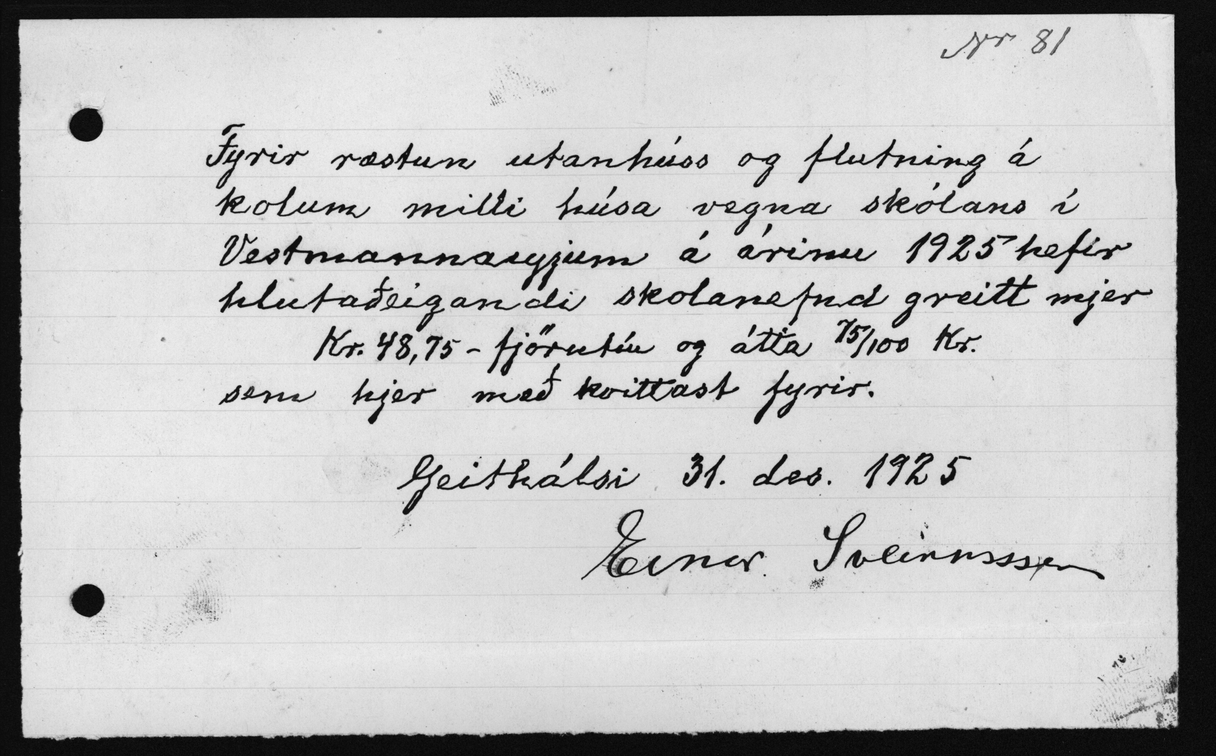 Nr 81
Fyrir ræstun utanhúss og flutning á
kolum milli húsa vegna skólans í
Vestmannaeyjum á árinu 1925 hefir
hlutaðeigandi skolanefnd greitt mjer
Kr. 48,75 - fjörutíu og átta 75/100 Kr.
sem hjer með kvittast fyrir.
Geithálsi 31. des. 1925
Einar Sveinsson